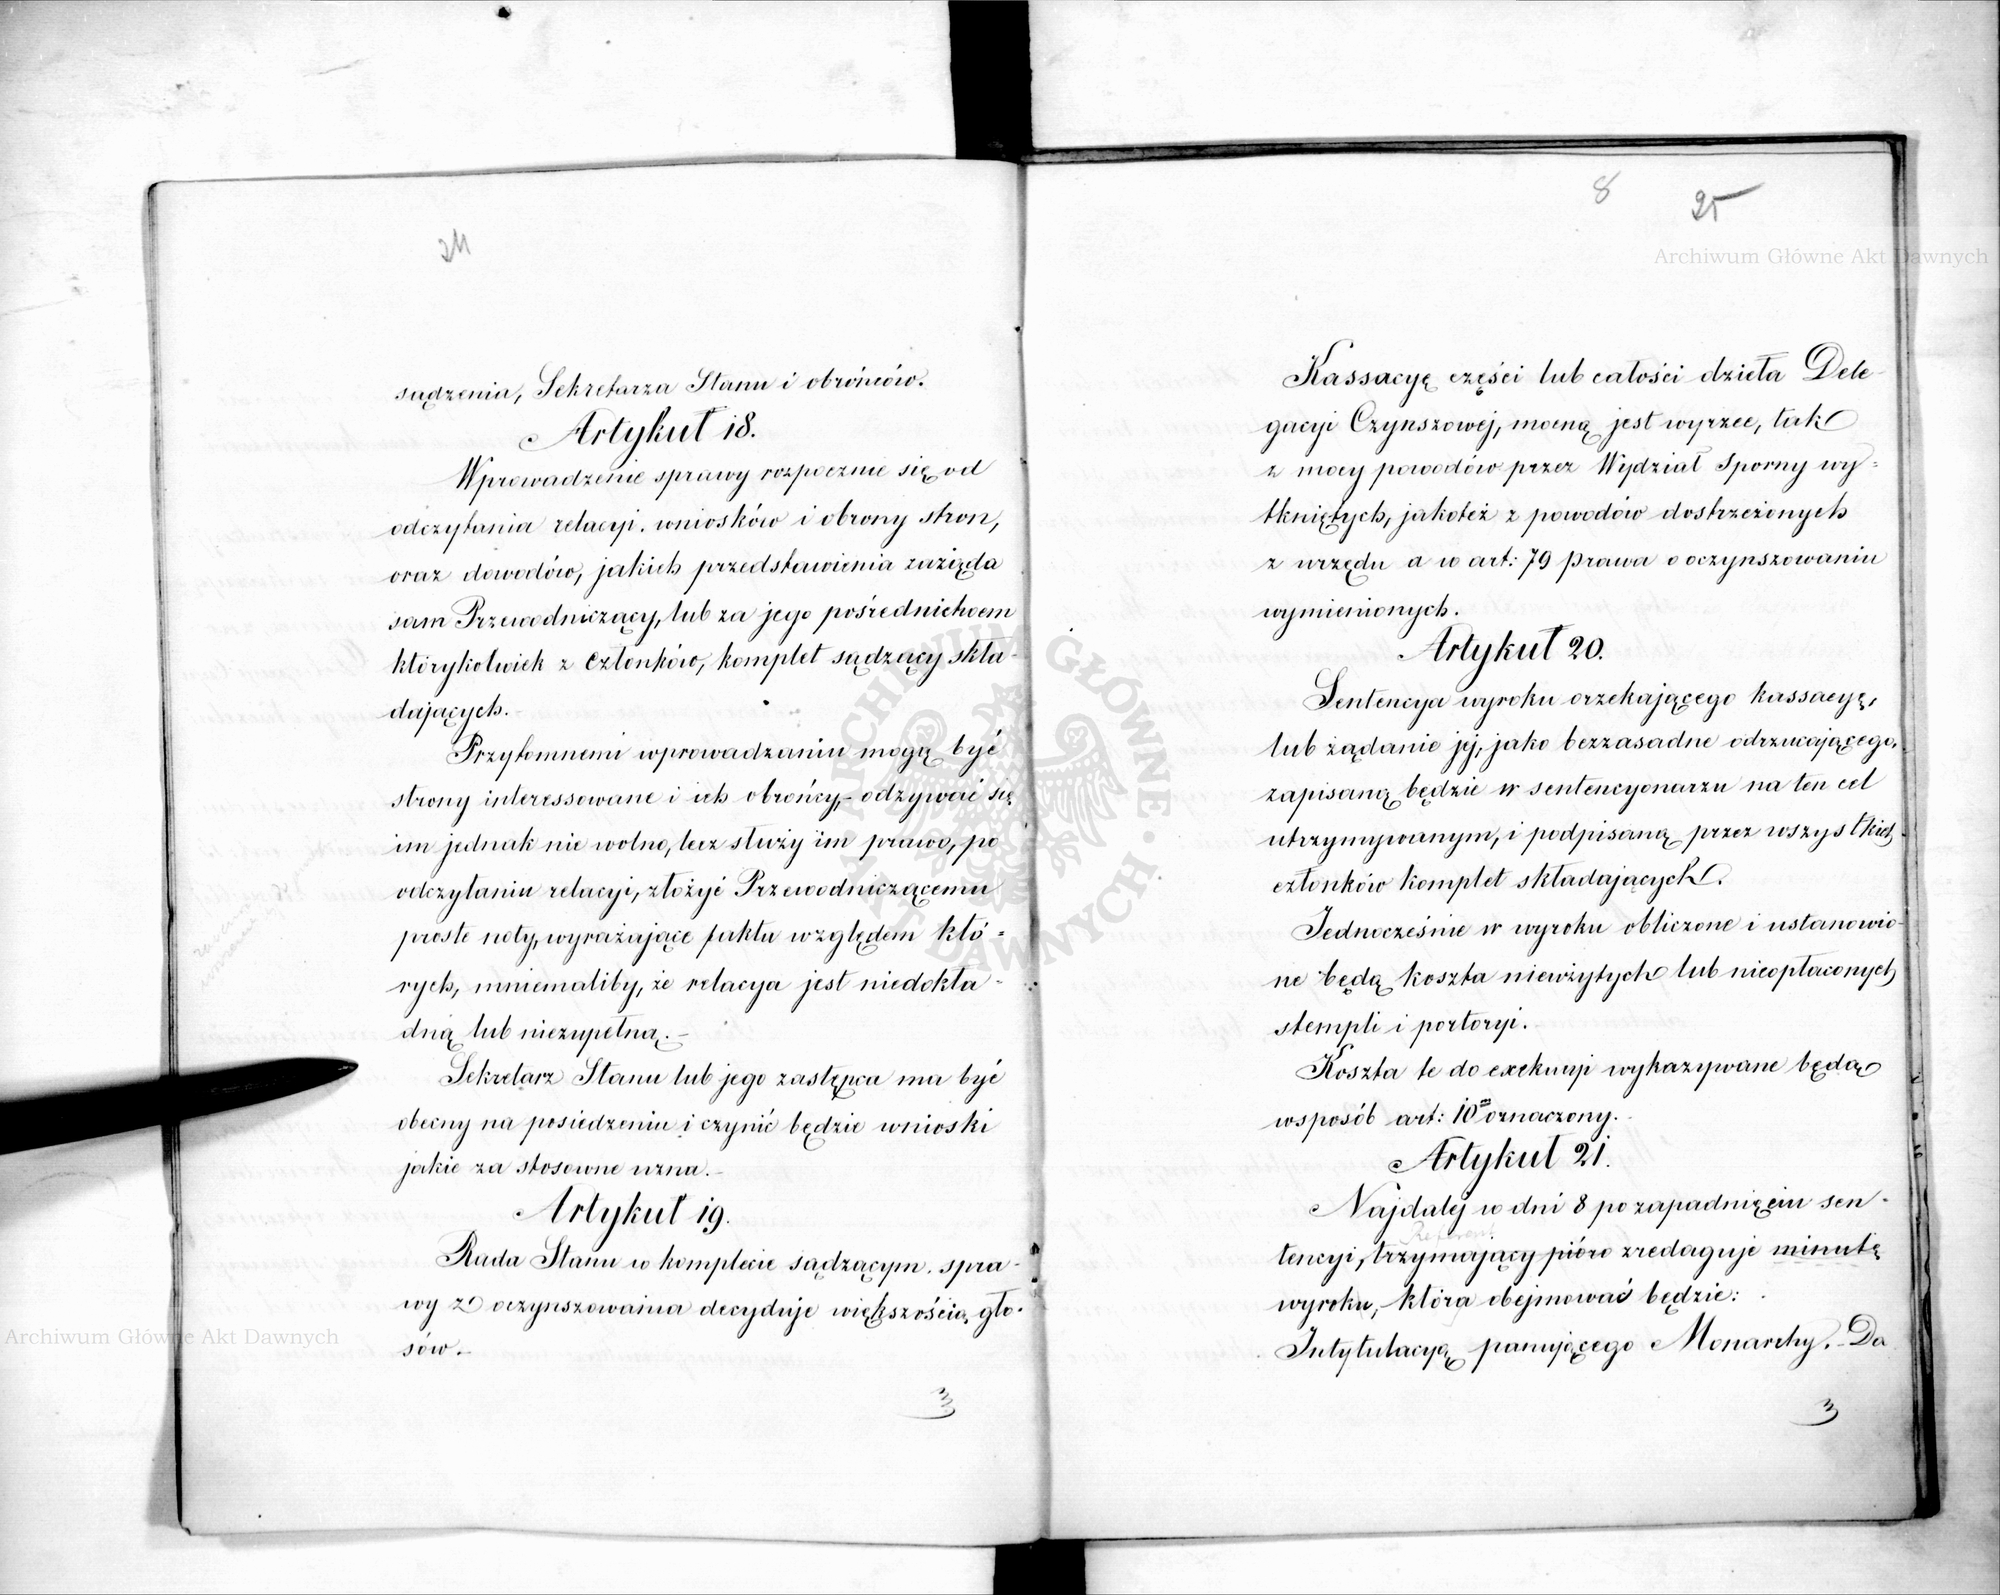 24
sądzenia, Sekretarza Stanu i obrońców.
Artykuł 18.
Wprowadzenie sprawy rozpocznie się od
odczytania relacyi, wniosków i obrony stron,
oraz dowodów, jakich przedstawienia zażąda
sam Przewodniczący, lub za jego pośrednictwem
którykolwiek z członków, komplet sądzący skła-
dających.
Przytomnemi wprowadzaniu mogą być
strony interessowane i ich obrońcy, - odzywać się
im jednak nie wolno, lecz służy im prawo, po
odczytaniu relacyi, złożyć Przewodniczącemu
proste noty, wyrażające fakta względem któ=
rych, mniemaliby, że relacya jest niedokła-
dną lub niezupełną. -
Sekretarz Stanu lub jego zastępca ma być
obecny na posiedzeniu i czynić będzie wnioski
jakie za stosowne uzna. -
Artykuł 19.
Rada Stanu w komplecie sądzącym, spra-
wy z oczynszowania decyduje większością gło-
sów. -
3
8
25
Kassacyę części lub całości dzieła Dele-
gacyi Czynszowej, mocną jest wyrzec, tak
z mocy powodów przez Wydział Sporny wy=
tkniętych, jakoteż z powodów dostrzeżonych
z urzędu a w art: 79 prawa o oczynszowaniu
wymienionych.
Artykuł 20.
Sentencya wyroku orzekającego kassacyę,
lub żądanie jej, jako bezzasadne odrzucającego,
zapisaną będzie w sentencyonarzu na ten cel
utrzymywanym, i podpisaną przez wszystkich
członków komplet składających.
Jednocześnie w wyroku obliczone i ustanowio-
ne będą koszta nieużytych lub nieopłaconych
stempli i portoryi.
Koszta te do exekucyi wykazywane będą
wsposób art: 10 oznaczony. -
Artykuł 21.
Najdalej w dni 8 po zapadnięciu sen-
Referent
tencyi, trzymający pióro zredaguje minutę
wyroku, która obejmować będzie:
Intytulacyą panującego Monarchy. - Da
3
Archiwum Główne Akt Dawnych
Archiwum Główne Akt Dawnych
ARCHIWUM GŁÓWNE AKT DAWNYCH